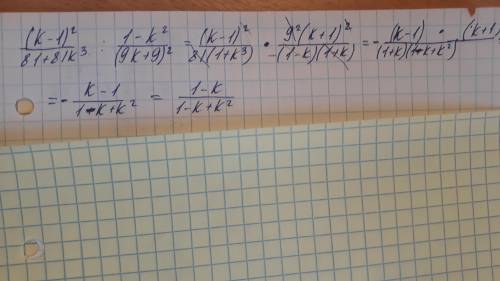 (k-1)² / 81+81k³ : 1-k² / (9k+9)² = (k-1)² / 81(1+k³) · 9²(k+1)² / -(1-k)(1+k) = - (k-1) / (1+k)(1-k+k²) · (k+1)
= - k-1 / 1-k+k² = 1-k / 1-k+k²